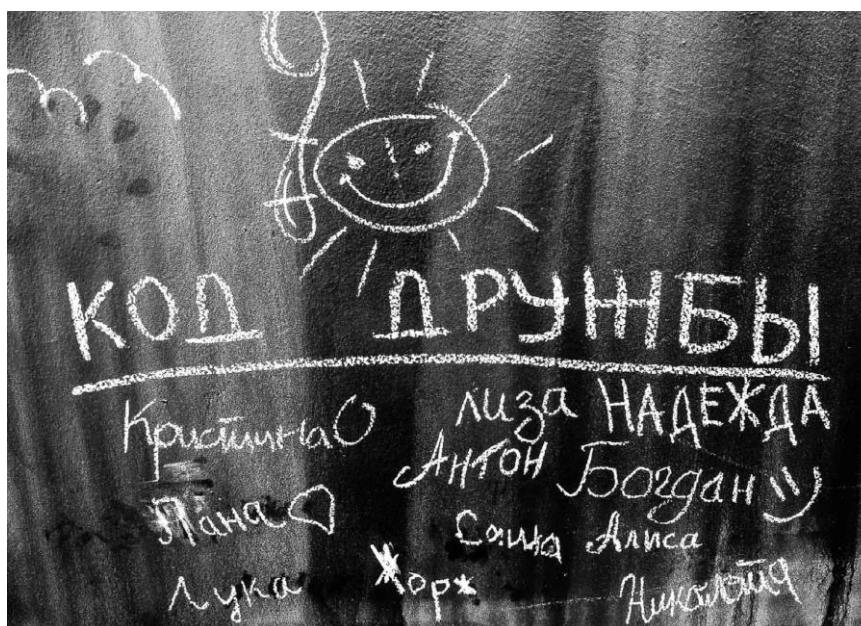 КОД ДРУЖБЫ
Кристина лиза НАДЕЖДА
Антон Богдан
Лана Саша Алиса
Лука Жорж